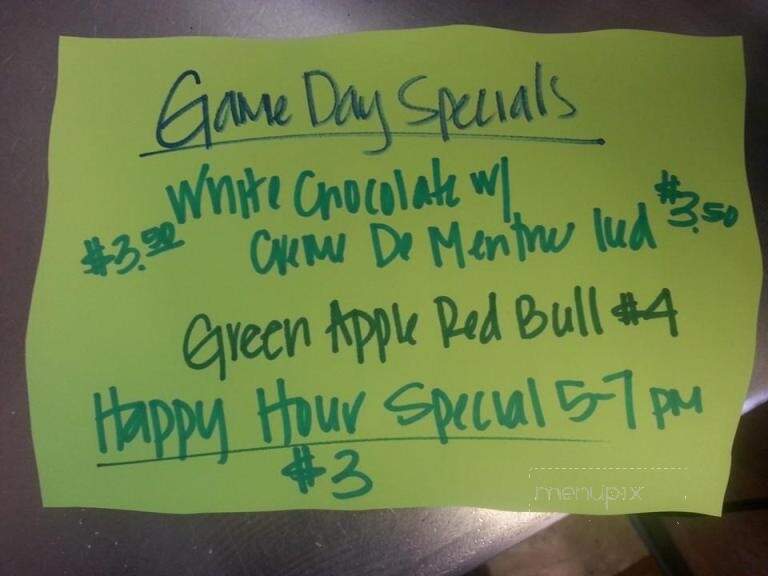 Game Day Specials
White Chocolate w/
$3.50 Creme De Menthe Iced $3.50
Green Apple Red Bull $4
Happy Hour Special 5-7 pm
$3
menupix